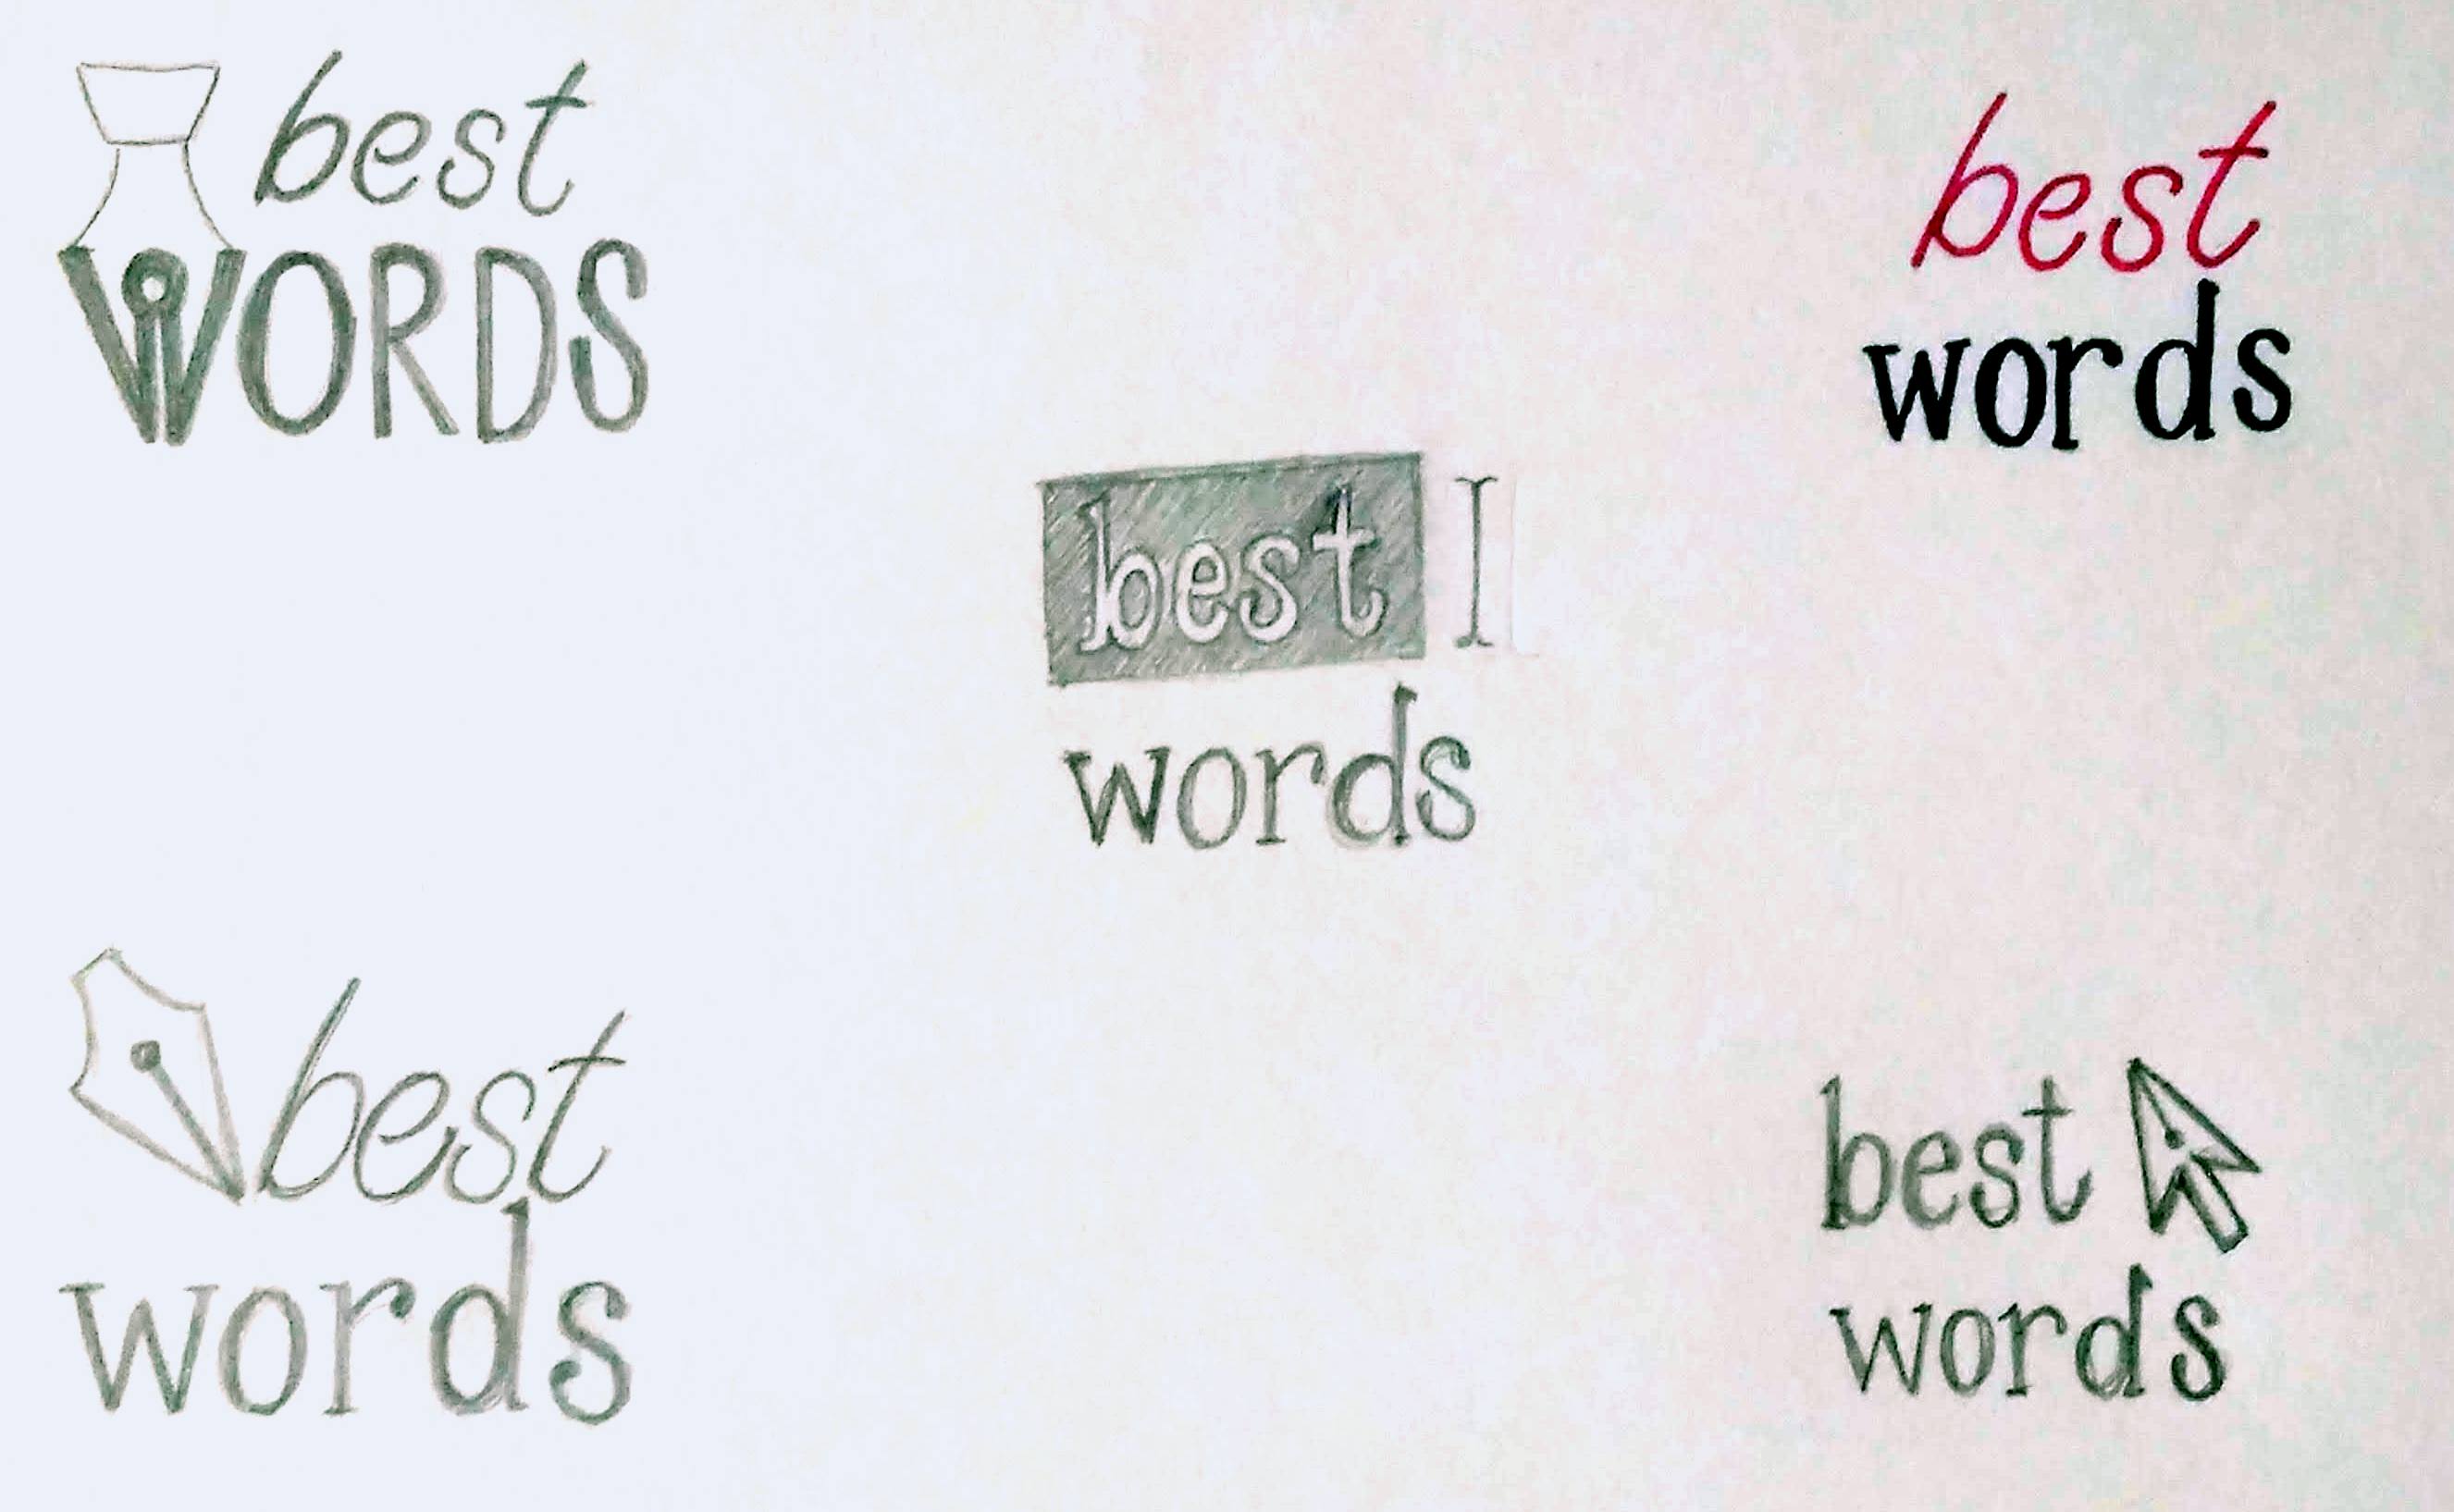 best
WORDS
best
words
best
words
best
words
best
words